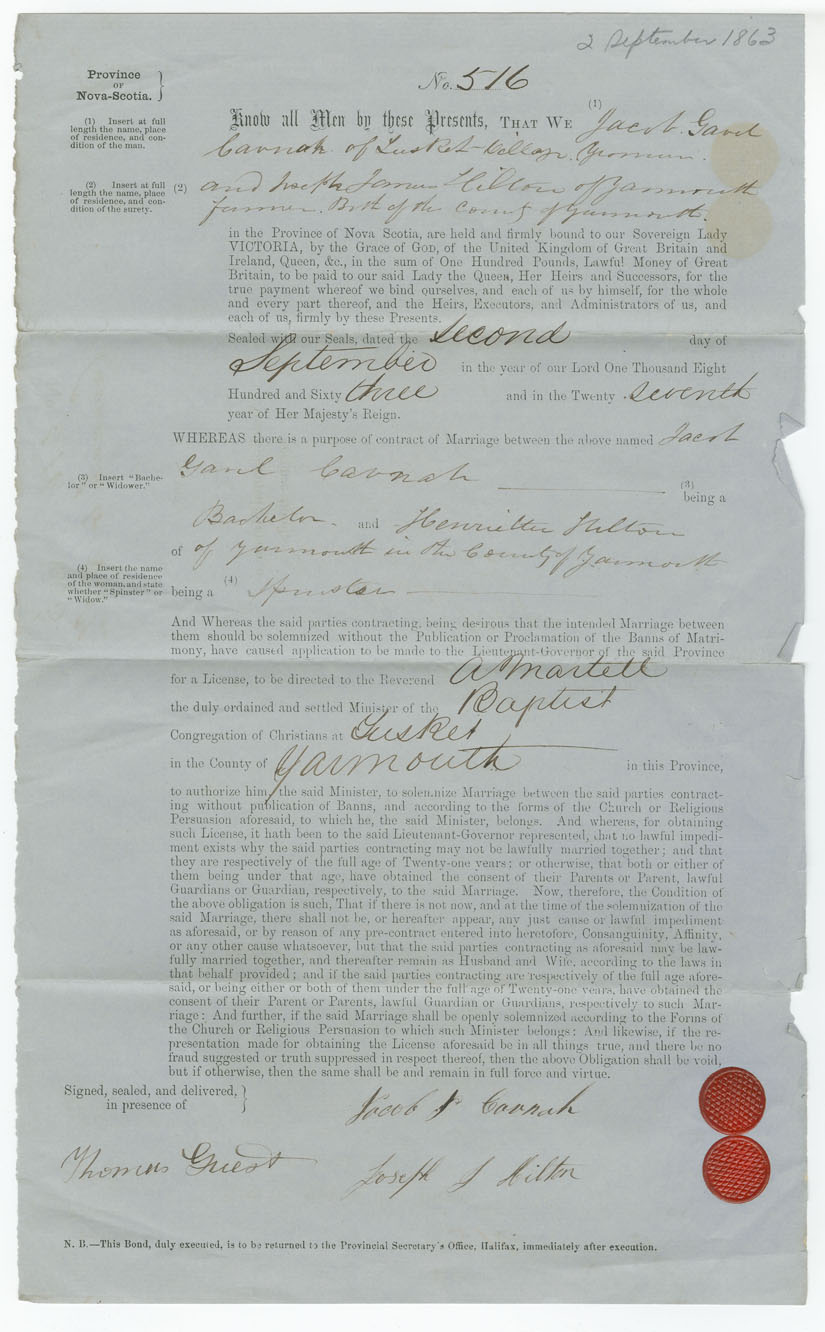 2 September 1863
Province
OF
Nova-Scotia.
No. 516
(1) Insert at full
length the name, place
of residence, and con-
dition of the man.
Know all Men by these Presents, THAT WE (1) Jacob Gavel
Cavnah of Tusket Village. Yeoman.
(2) Insert at full
length the name, place
of residence, and con-
dition of the surety.
(2) and Joseph James Hilton of Yarmouth
farmer. Both of the County of Yarmouth.
in the Province of Nova Scotia, are held and firmly bound to our Sovereign Lady
VICTORIA, by the Grace of GOD, of the United Kingdom of Great Britain and
Ireland, Queen, &c., in the sum of One Hundred Pounds, Lawful Money of Great
Britain, to be paid to our said Lady the Queen, Her Heirs and Successors, for the
true payment whereof we bind ourselves, and each of us by himself, for the whole
and every part thereof, and the Heirs, Executors, and Administrators of us, and
each of us, firmly by these Presents.
Sealed with our Seals, dated the second day of
September in the year of our Lord One Thousand Eight
Hundred and Sixty three and in the Twenty seventh
year of Her Majesty's Reign.
WHEREAS there is a purpose of contract of Marriage between the above named Jacob
Gavel Cavnah
(3) Insert "Bache-
lor" or "Widower."
(3)
being a
Bachelor and Henrietta Hilton
of of Yarmouth in the County of Yarmouth
(4) Insert the name
and place of residence
of the woman, and state
whether "Spinster" or
"Widow."
being a (4) Spinster
And Whereas the said parties contracting, being desirous that the intended Marriage between
them should be solemnized without the Publication or Proclamation of the Banns of Matri-
mony, have caused application to be made to the Lieutenant-Governor of the said Province
for a License, to be directed to the Reverend A Martell
the duly ordained and settled Minister of the Baptist
Congregation of Christians at Tusket
in the County of Yarmouth in this Province,
to authorize him, the said Minister, to solemnize Marriage between the said parties contract-
ing without publication of Banns, and according to the forms of the Church or Religious
Persuasion aforesaid, to which he, the said Minister, belongs. And whereas, for obtaining
such License, it hath been to the said Lieutenant-Governor represented, that no lawful impedi-
ment exists why the said parties contracting may not be lawfully married together; and that
they are respectively of the full age of Twenty-one years; or otherwise, that both or either of
them being under that age, have obtained the consent of their Parents or Parent, lawful
Guardians or Guardian, respectively, to the said Marriage. Now, therefore, the Condition of
the above obligation is such, That if there is not now, and at the time of the solemnization of the
said Marriage, there shall not be, or hereafter appear, any just cause or lawful impediment
as aforesaid, or by reason of any pre-contract entered into heretofore, Consanguinity, Affinity,
or any other cause whatsoever, but that the said parties contracting as aforesaid may be law-
fully married together, and thereafter remain as Husband and Wife, according to the laws in
that behalf provided; and if the said parties contracting are respectively of the full age afore-
said, or being either or both of them under the full age of Twenty-one years, have obtained the
consent of their Parent or Parents, lawful Guardian or Guardians, respectively to such Mar-
riage: And further, if the said Marriage shall be openly solemnized according to the Forms of
the Church or Religious Persuasion to which such Minister belongs: And likewise, if the re-
presentation made for obtaining the License aforesaid be in all things true, and there be no
fraud suggested or truth suppressed in respect thereof, then the above Obligation shall be void,
but if otherwise, then the same shall be and remain in full force and virtue.
Signed, sealed, and delivered,
in presence of
Jacob Cavnah
Thomas Guest
Joseph J Hilton
N. B.—This Bond, duly executed, is to be returned to the Provincial Secretary's Office, Halifax, immediately after execution.